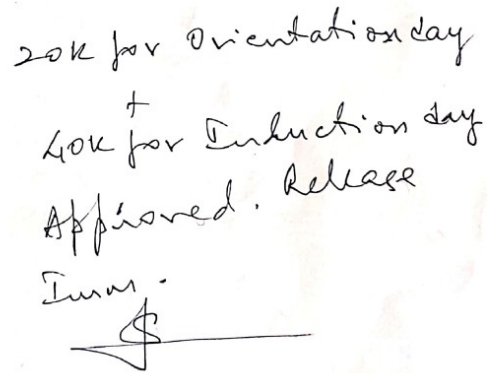 20K for Orientation day
+
40K for Induction day
Approved. Release
Imm.